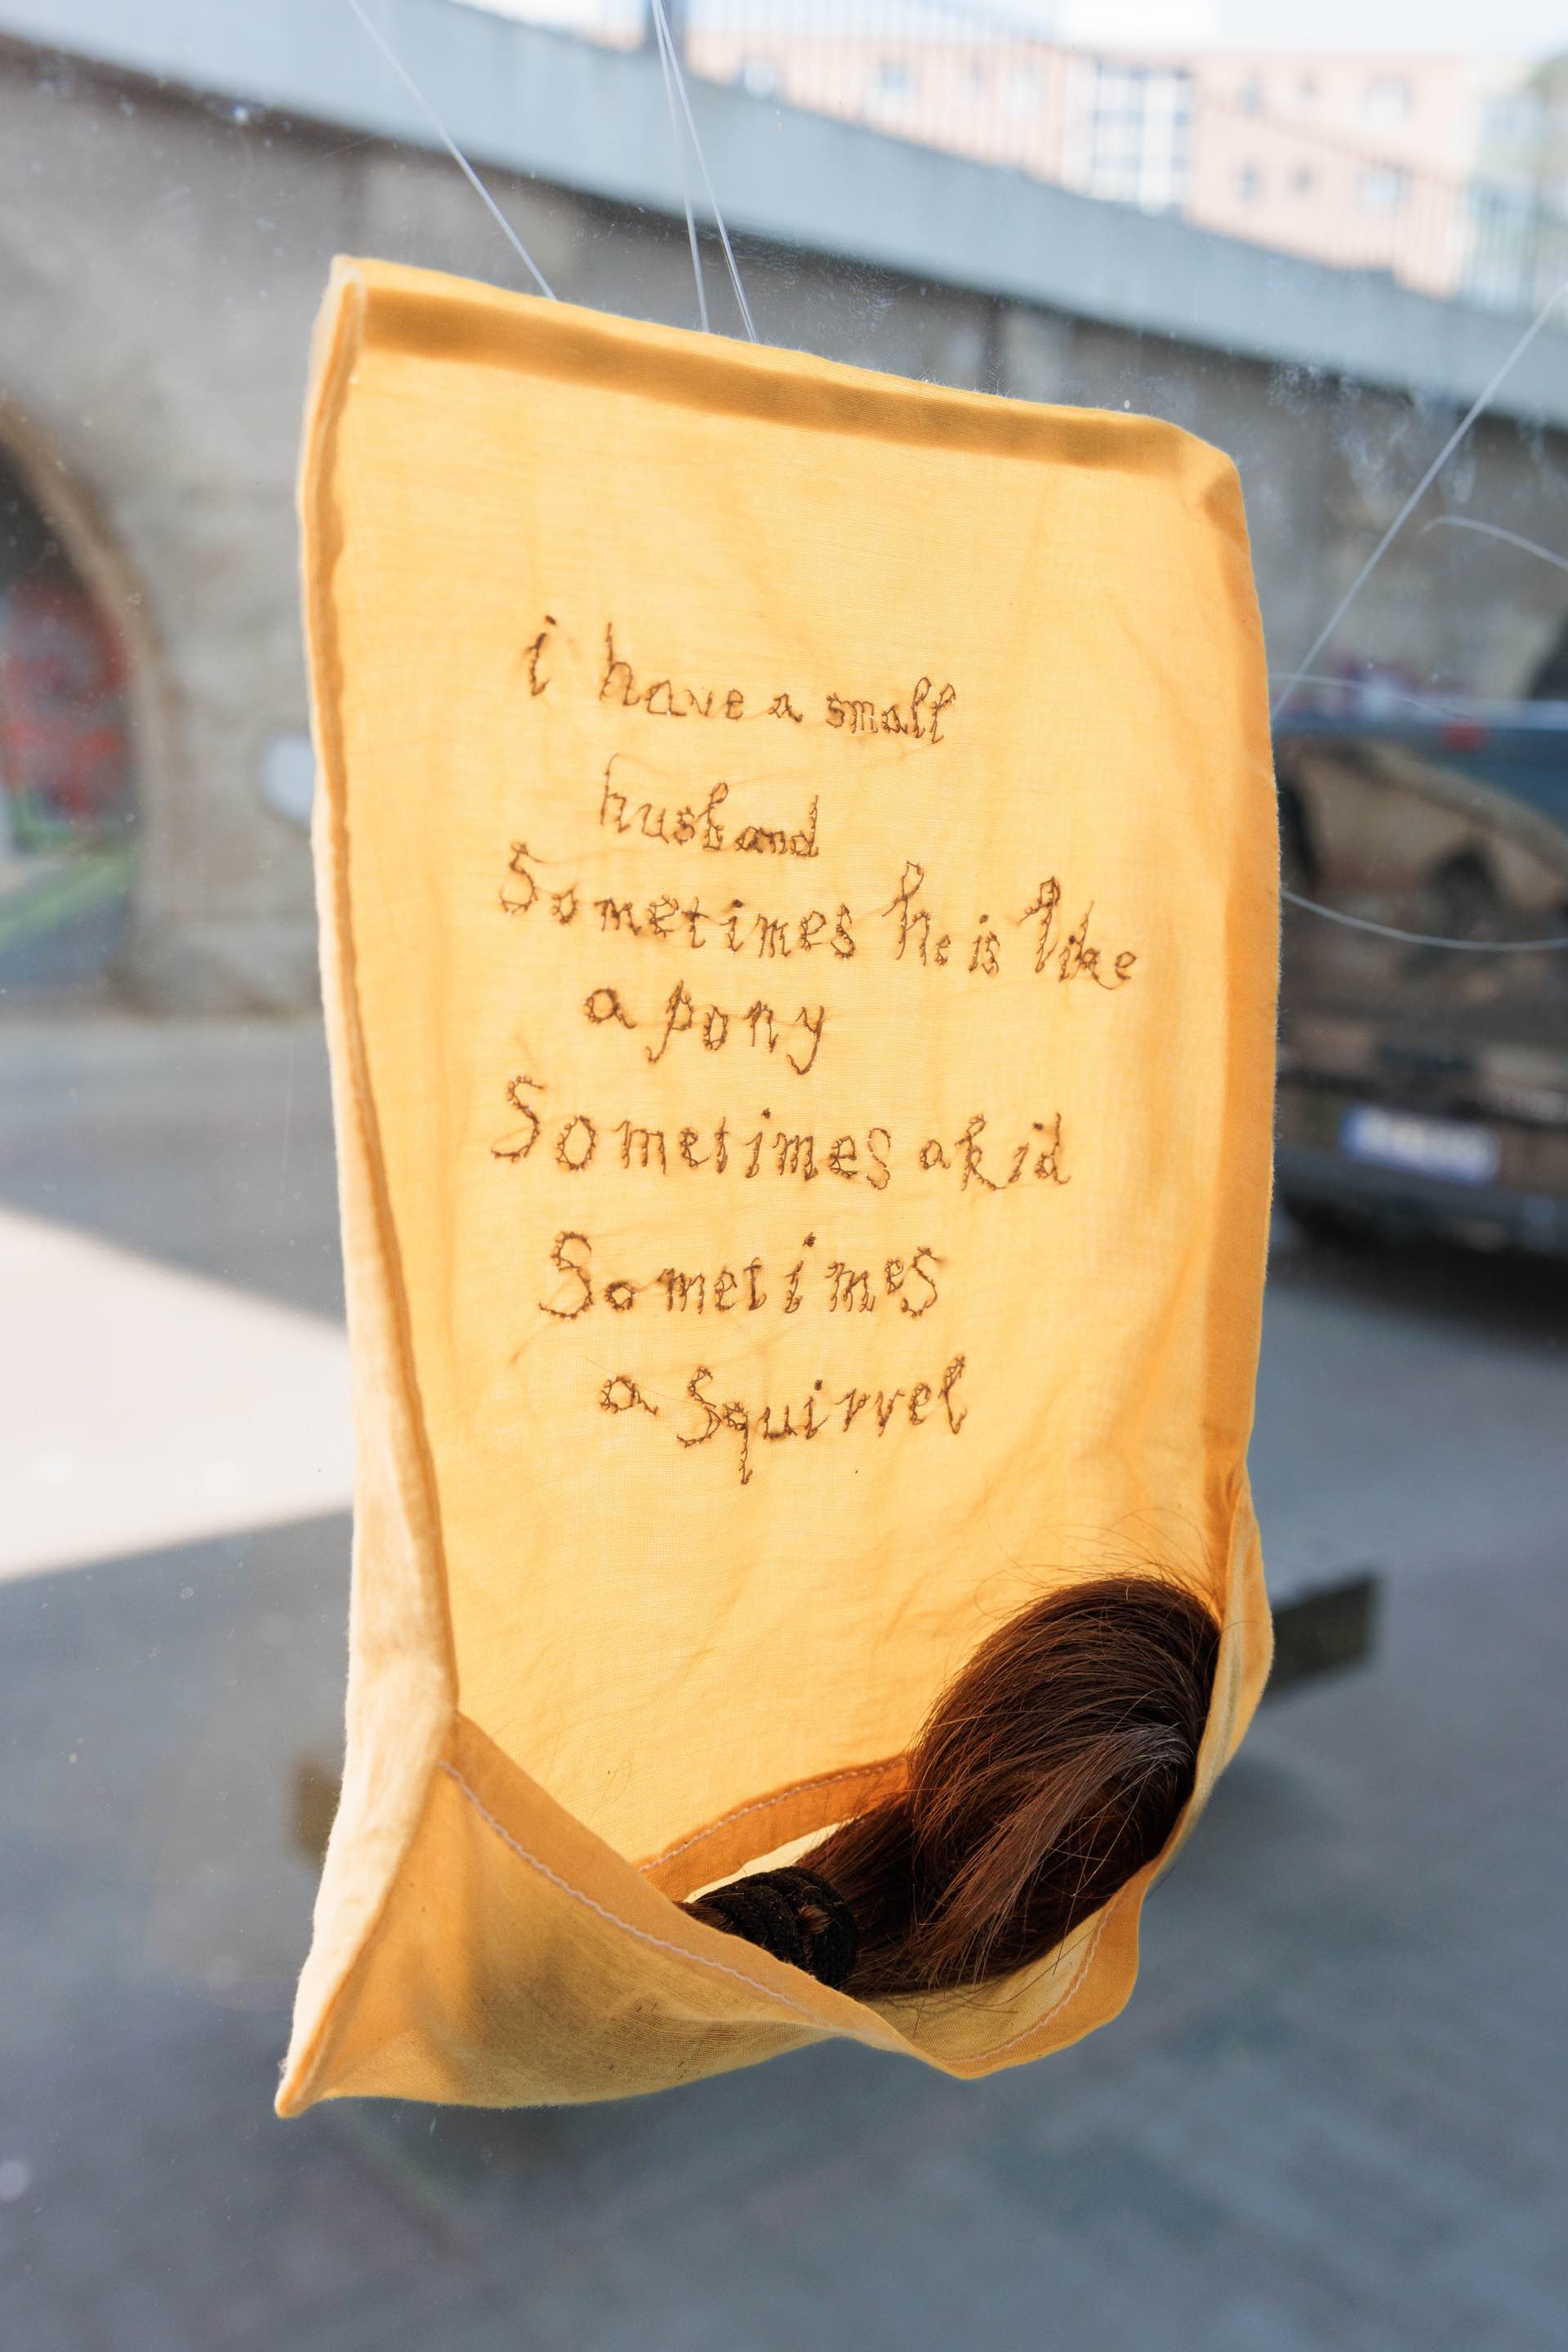 i have a small
husband
Sometimes he is like
a pony
Sometimes a kid
Sometimes
a Squirrel